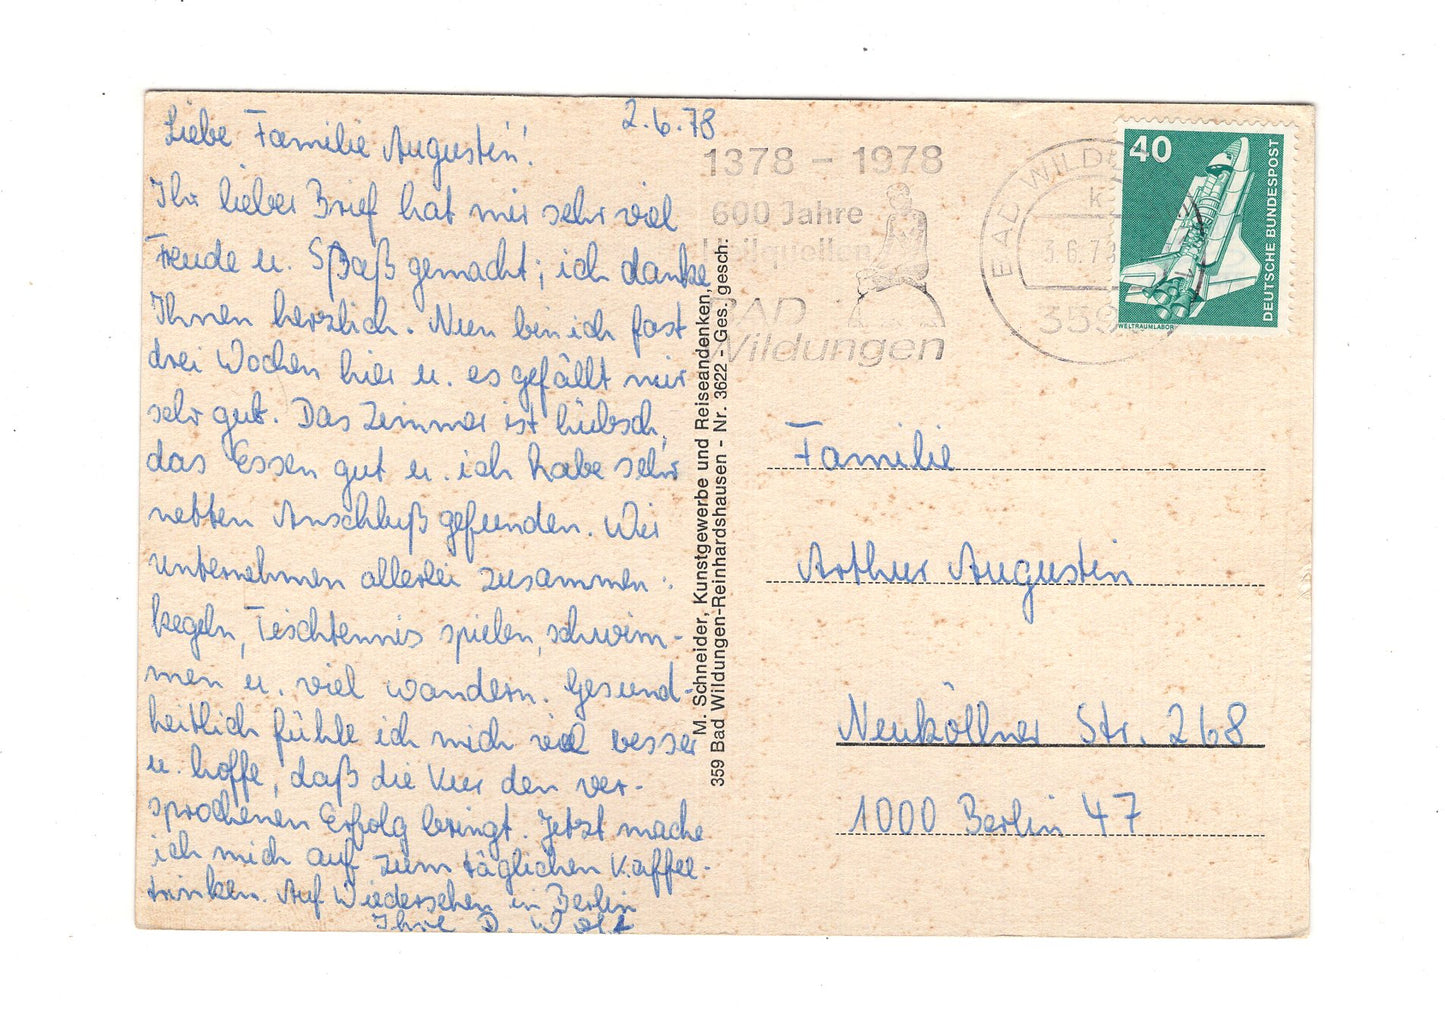 2.6.78
Liebe Familie Augustin!
Ihr lieber Brief hat mir sehr viel
Freude u. Spaß gemacht; ich danke
Ihnen herzlich. Nun bin ich fast
drei Wochen hier u. es gefällt mir
sehr gut. Das Zimmer ist hübsch,
das Essen gut u. ich habe sehr
netten Anschluß gefunden. Wir
unternehmen allerlei zusammen:
kegeln, Tischtennis spielen, schwim-
men u. viel wandern. Gesund-
heitlich fühle ich mich viel besser
u. hoffe, daß die Kur den ver-
sprochenen Erfolg bringt. Jetzt mache
ich mich auf zum täglichen Kaffee-
trinken. Auf Wiedersehen in Berlin
Ihre D.
M. Schneider, Kunstgewerbe und Reiseandenken,
359 Bad Wildungen-Reinhardshausen - Nr. 3622 - Ges. gesch.
1378 - 1978
600 Jahre
Heilquellen
BAD
Wildungen
BAD WILDUNGEN
40
DEUTSCHE BUNDESPOST
WELTRAUMLABOR
Familie
Arthur Augustin
Neuköllner Str. 268
1000 Berlin 47